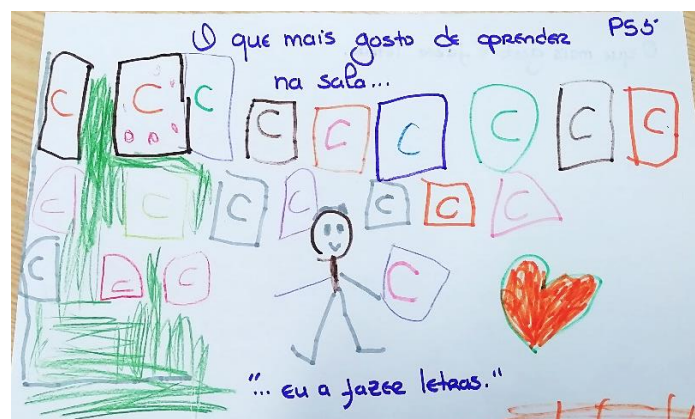 O que mais gosto de aprender PS5
na sala...
C C C C C C C C C C
C C C C C C C
C C C C
"... eu a fazer letras."